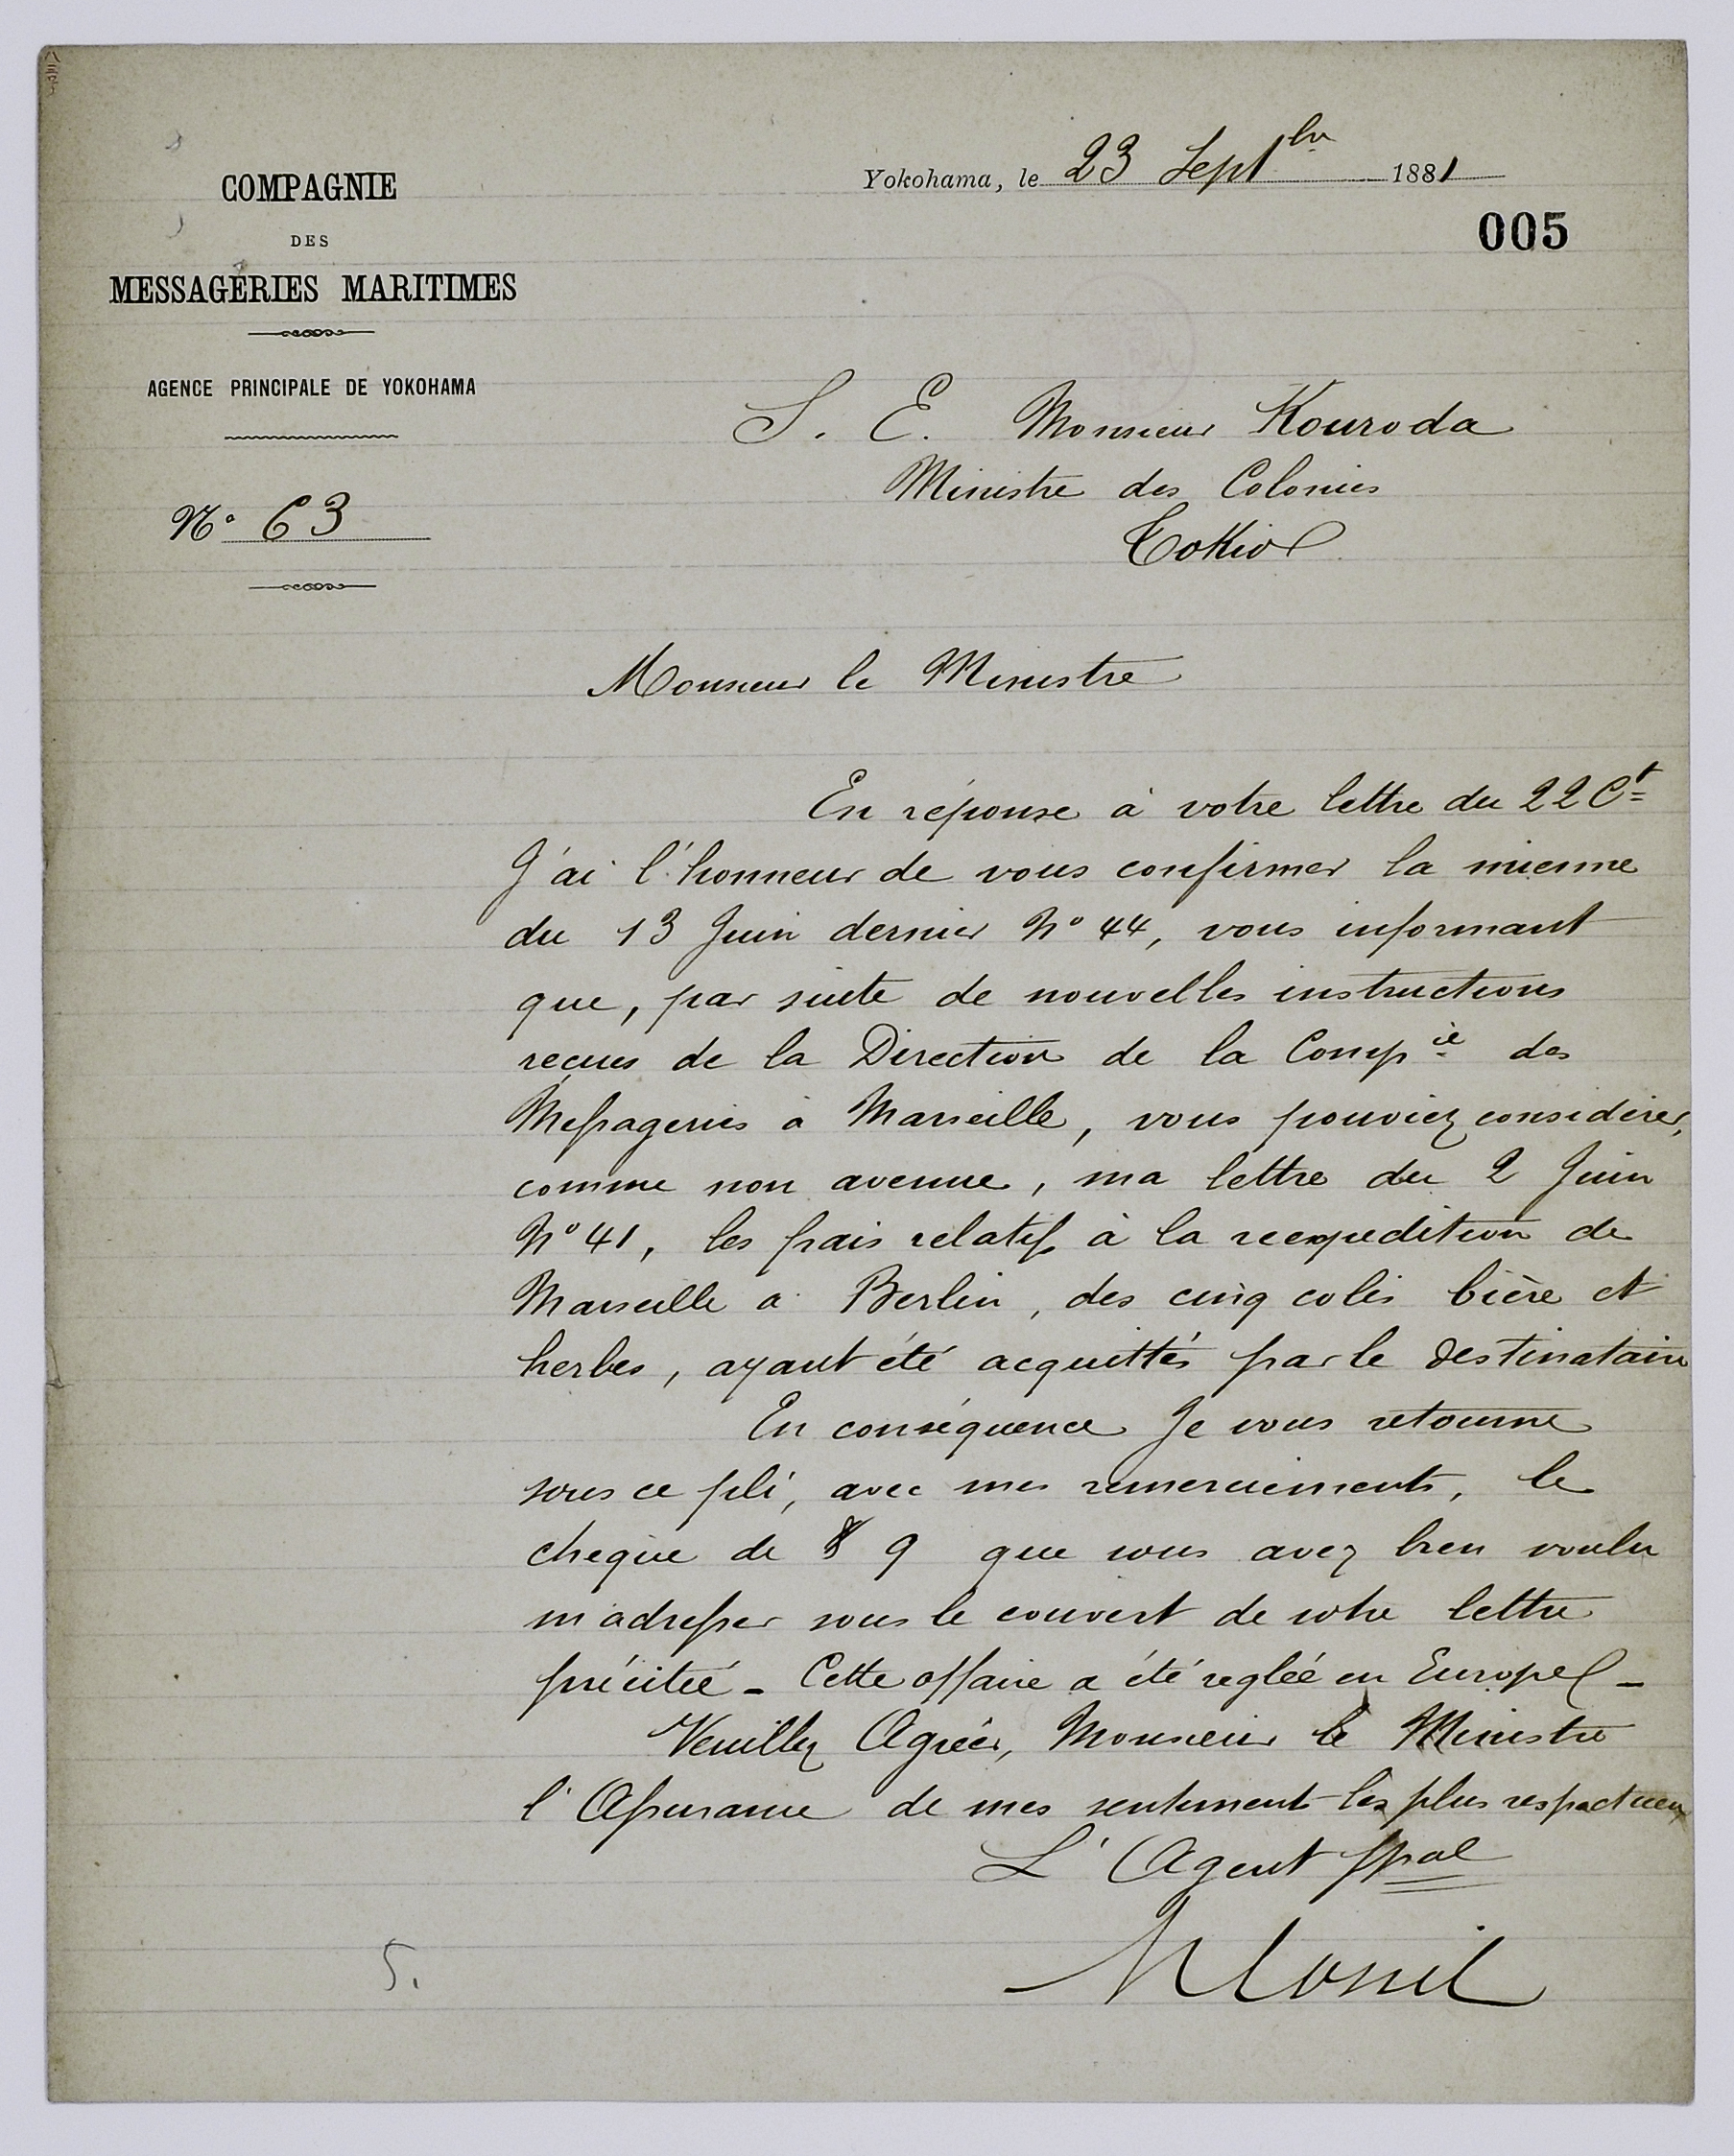 Yokohama, le 23 Sept bre 1881
005
COMPAGNIE
DES
MESSAGERIES MARITIMES
AGENCE PRINCIPALE DE YOKOHAMA
N° 63
S. E. Monsieur Kouroda
Ministre des Colonies
Tokio
Monsieur le Ministre
En réponse à votre lettre du 22 Ct
J'ai l'honneur de vous confirmer la mienne
du 13 Juin dernier N° 44, vous informant
que, par suite de nouvelles instructions
reçues de la Direction de la Comp ie des
Messageries à Marseille, vous pouviez considérer,
comme non avenue, ma lettre du 2 Juin
N° 41, les frais relatifs à la reexpedition de
Marseille a Berlin, des cinq colis bière et
herbes, ayant été acquittés par le destinataire
En conséquence Je vous retourne
sous ce pli, avec mes remerciements, le
cheque de $ 9 que vous avez bien voulu
m'adresser sous le couvert de votre lettre
précitée - Cette affaire a été regléé en Europe -
Veuillez Agréer, Monsieur le Ministre
l'Assurance de mes sentiments les plus respectueux
L'Agent ppal
5.